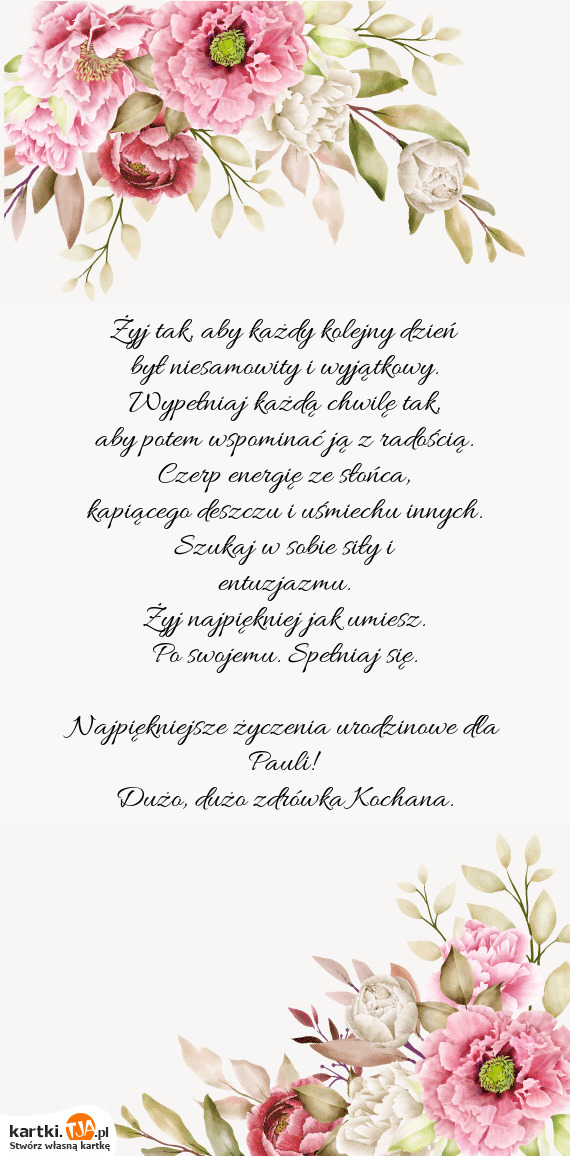 Żyj tak, aby każdy kolejny dzień
był niesamowity i wyjątkowy.
Wypełniaj każdą chwilę tak,
aby potem wspominać ją z radością.
Czerp energię ze słońca,
kapiącego deszczu i uśmiechu innych.
Szukaj w sobie siły i
entuzjazmu.
Żyj najpiękniej jak umiesz.
Po swojemu. Spełniaj się.
Najpiękniejsze życzenia urodzinowe dla
Pauli!
Dużo, dużo zdrówka Kochana.
kartki.TJA.pl
Stwórz własną kartkę